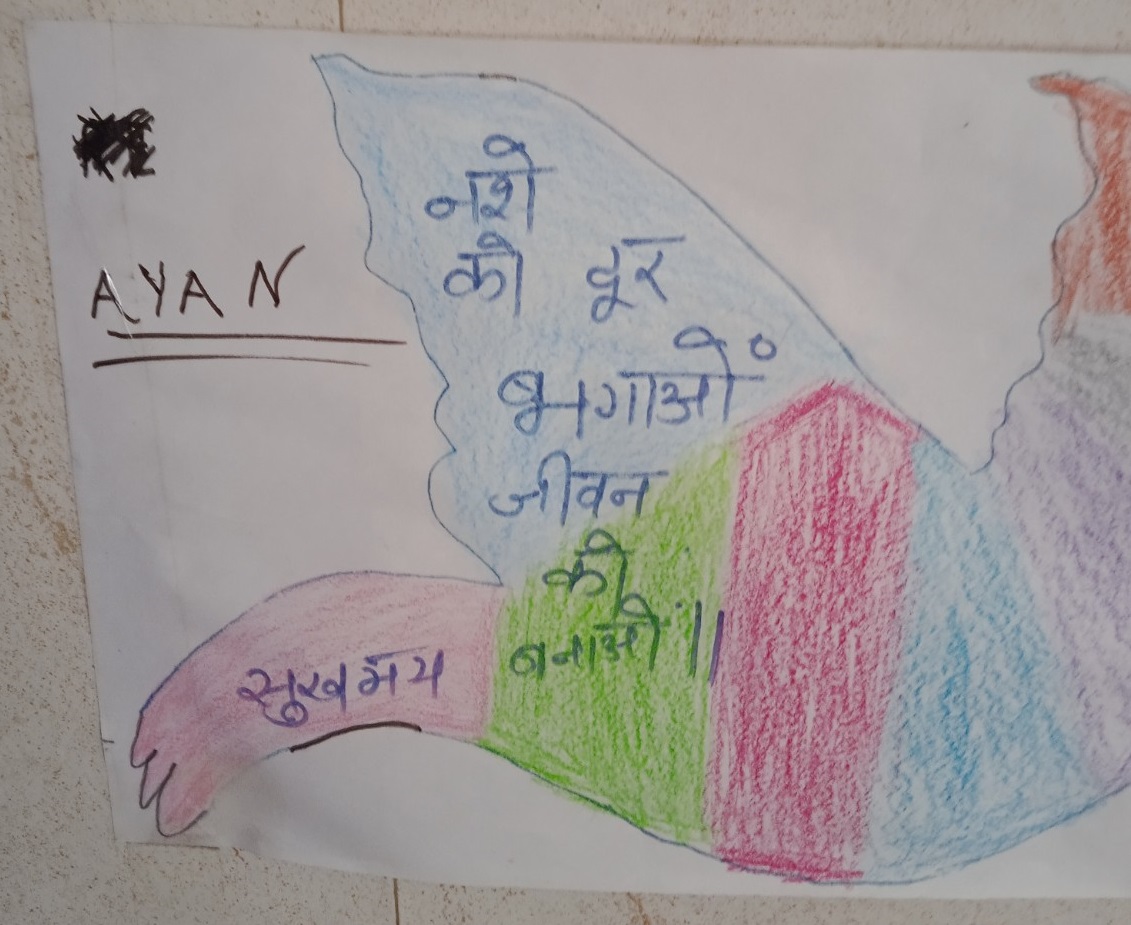 AYAN
नशे
को दूर
भगाओं
जीवन
को
सुखमय बनाओ ||